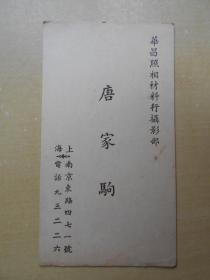 華昌照相材料行攝影部
唐家駒
上海南京東路四七一號
電話九三二二六